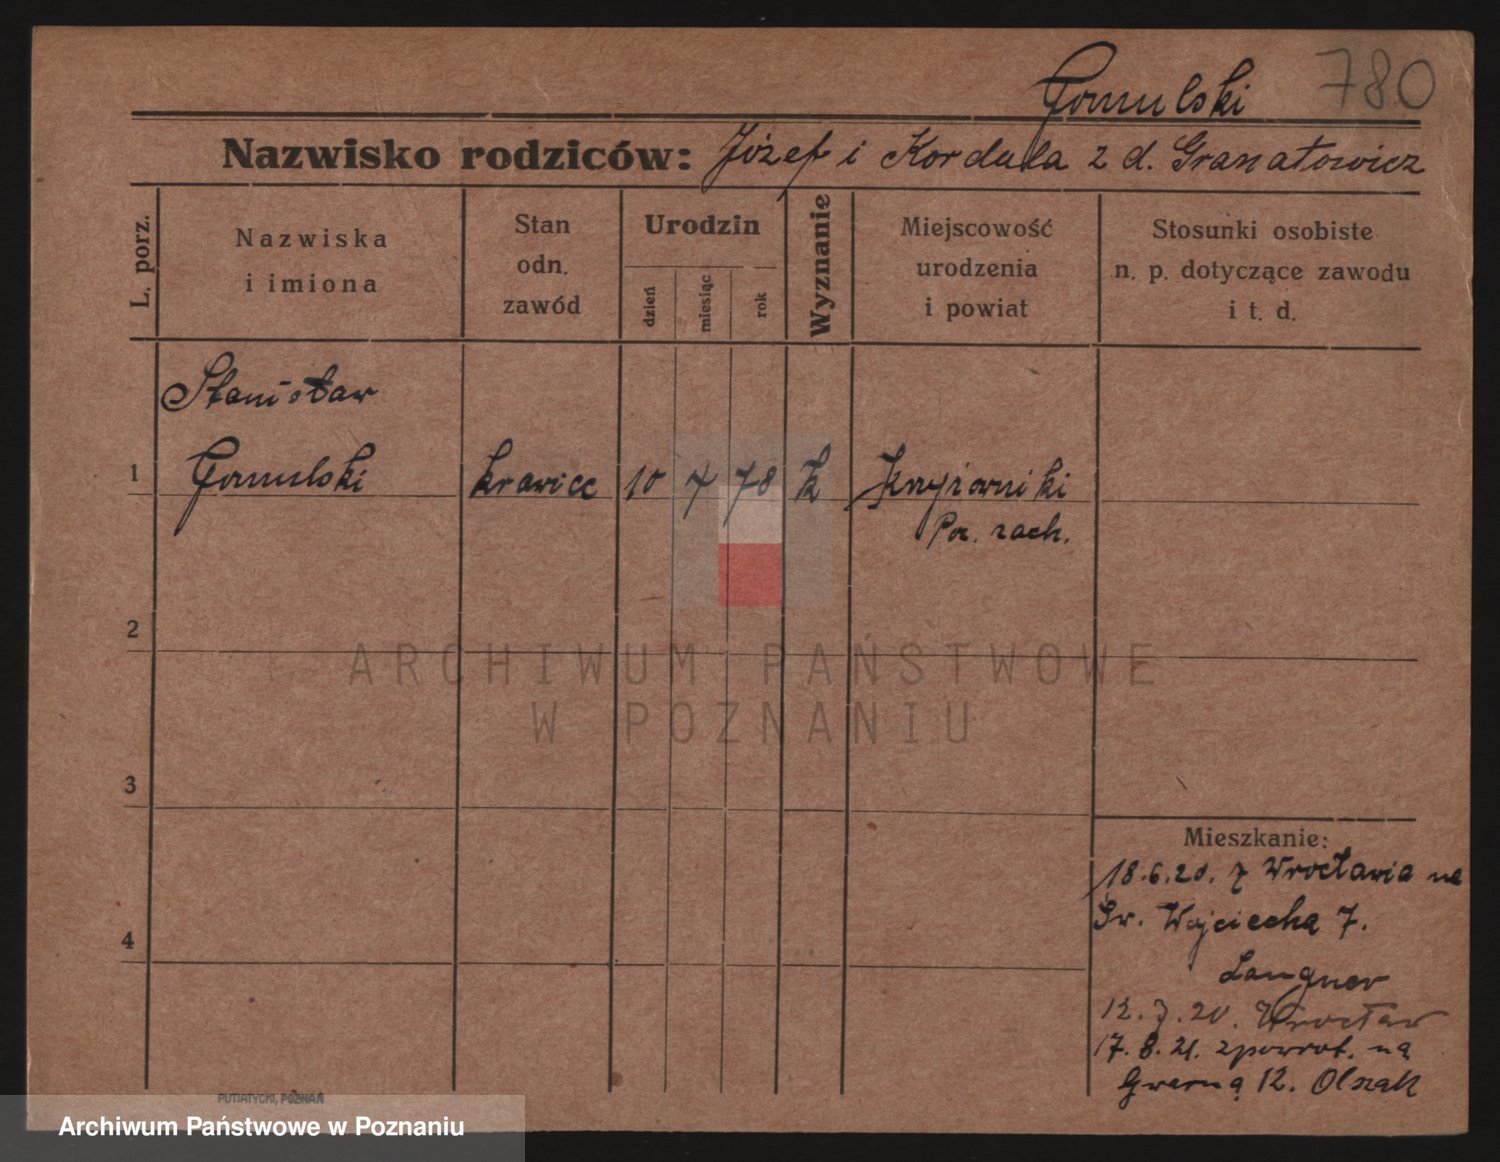 780
Gomulski
Nazwisko rodziców: Józef i Kordula z d. Granatowicz
L. porz.
Nazwiska
i imiona
Stan
odn.
zawód
Urodzin
dzień
miesiąc
rok
Wyznanie
Miejscowość
urodzenia
i powiat
Stosunki osobiste
n. p. dotyczące zawodu
i t. d.
Stanisław
1 Gomulski krawiec 10 7 78 k Krzyżowniki
Poz. zach.
2
ARCHIWUM PAŃSTWOWE
W POZNANIU
3
Mieszkanie:
18.6.20. z Wrocławia na
Św. Wojciecha 7.
4
Langner
12.7.20. Wrocław
17.8.21. zpowrot. na
Gwarną 12. Olszak
PUTIATYCKI, POZNAŃ
Archiwum Państwowe w Poznaniu